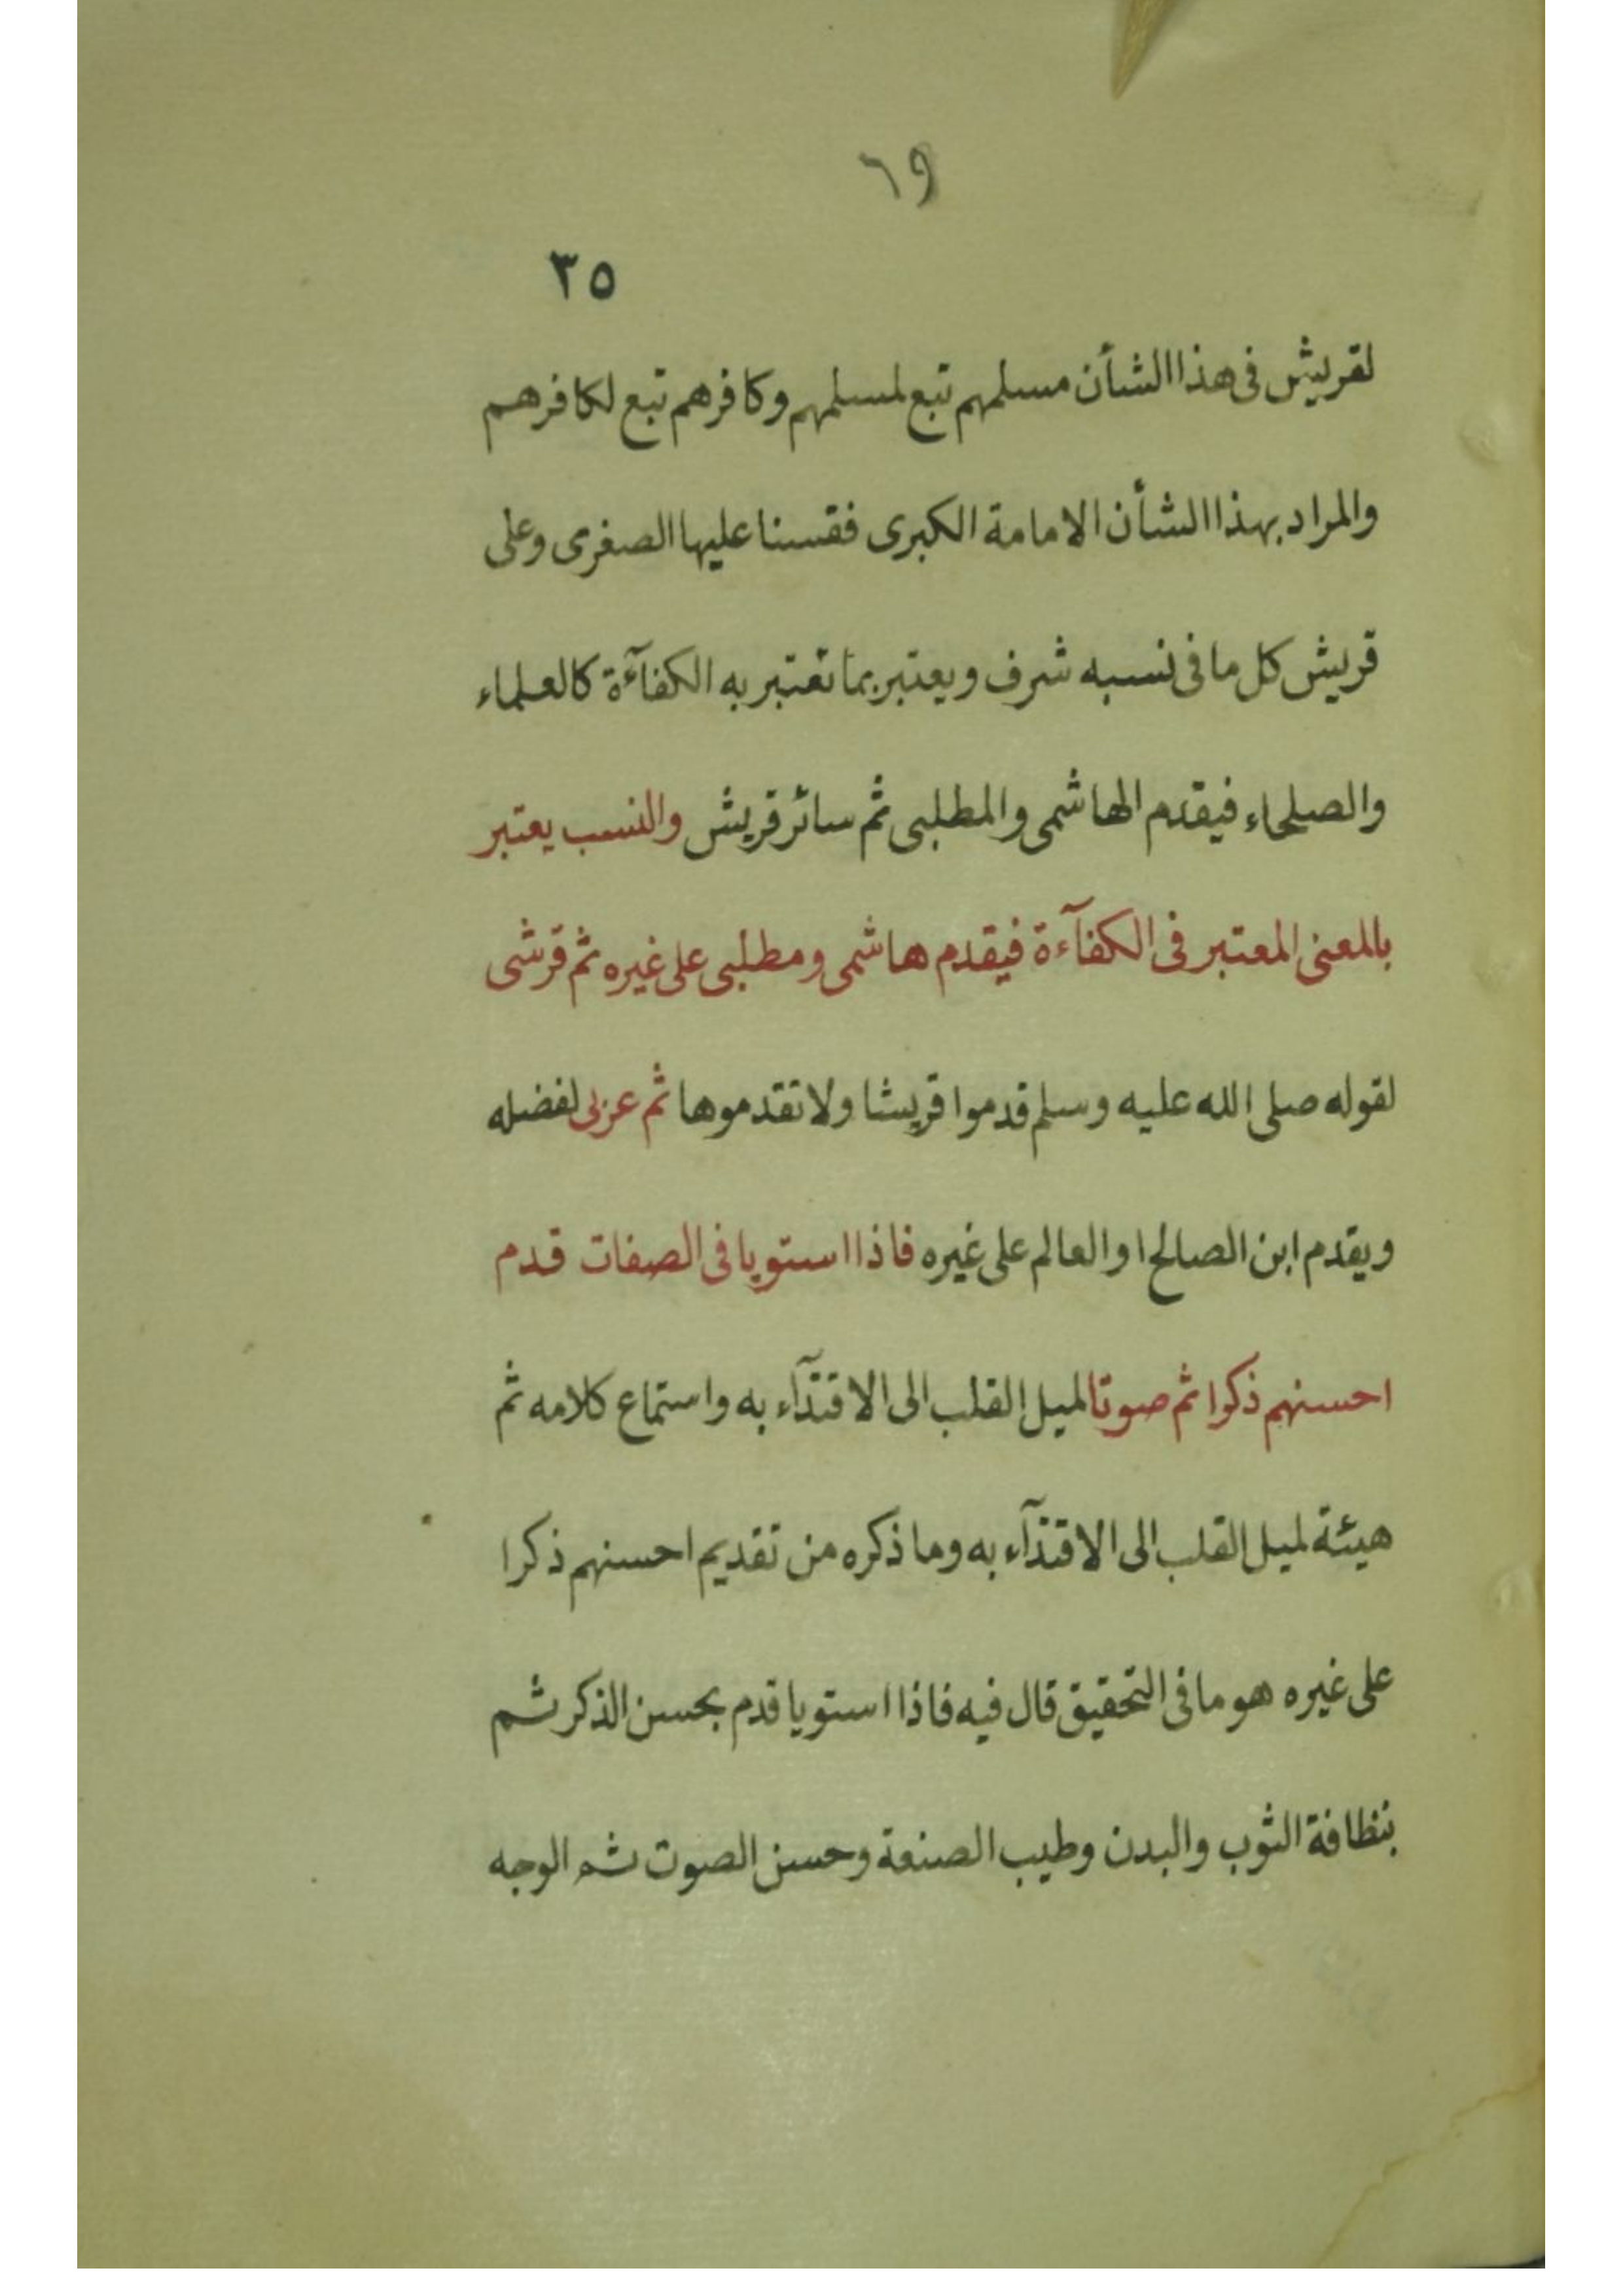 ٦٩
٣٥
لقريش فى هذا الشأن مسلمهم تبع لمسلمهم وكافرهم تبع لكافرهم
والمراد بهذا الشأن الامامة الكبرى فقسنا عليها الصغرى وعلى
قريش كل ما فى نسبه شرف ويعتبر بما تعتبر به الكفآءة كالعلماء
والصلحاء فيقدم الهاشمى والمطلبى ثم سائر قريش والنسب يعتبر
بالمعنى المعتبر فى الكفآءة فيقدم هاشمى ومطلبى على غيره ثم قرشى
لقوله صلى الله عليه وسلم قدموا قريشا ولا تقدموها ثم عربى لفضله
ويقدم ابن الصالح او العالم على غيره فاذا استويا فى الصفات قدم
احسنهم ذكرا ثم صوتا لميل القلب الى الاقتدآء به واستماع كلامه ثم
هيئة لميل القلب الى الاقتدآء به وما ذكره من تقديم احسنهم ذكرا
على غيره هو ما فى التحقيق قال فيه فاذا استويا قدم بحسن الذكر ثم
بنظافة الثوب والبدن وطيب الصنعة وحسن الصوت ثم الوجه